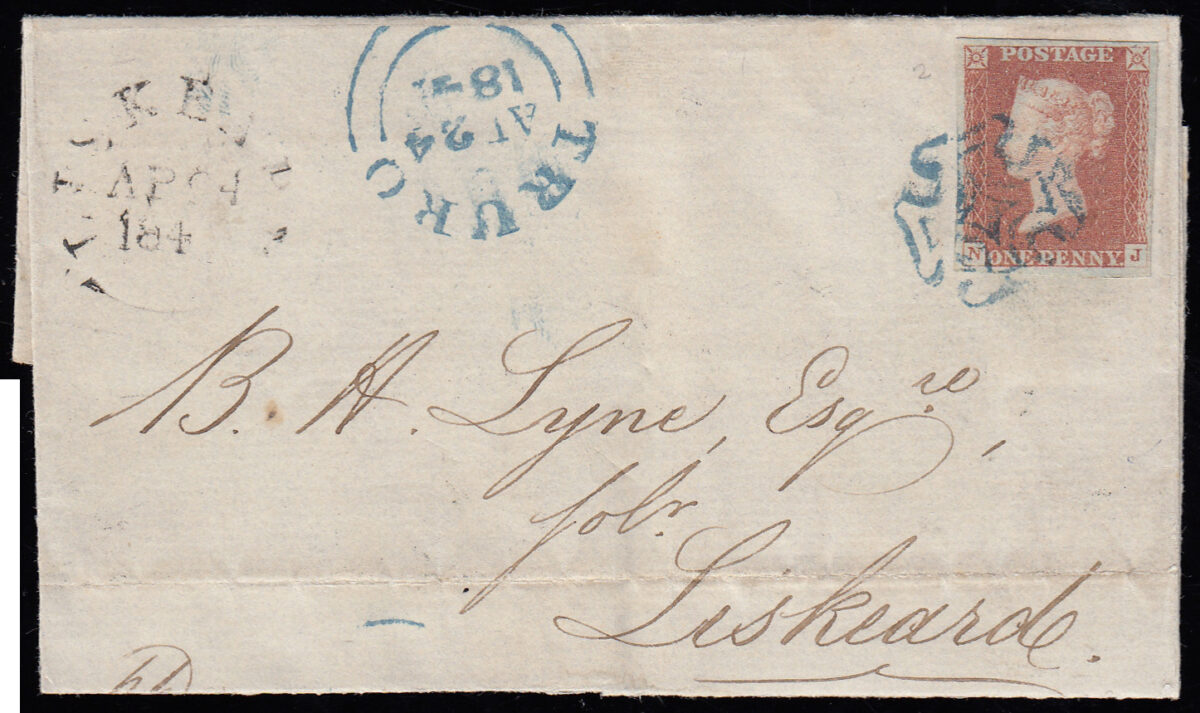 LISKEARD
AP 24
184
TRURO
AP 24
184
2
POSTAGE
N ONE PENNY. J
B. H. Lyne, Esqre,
solr.
Liskeard.